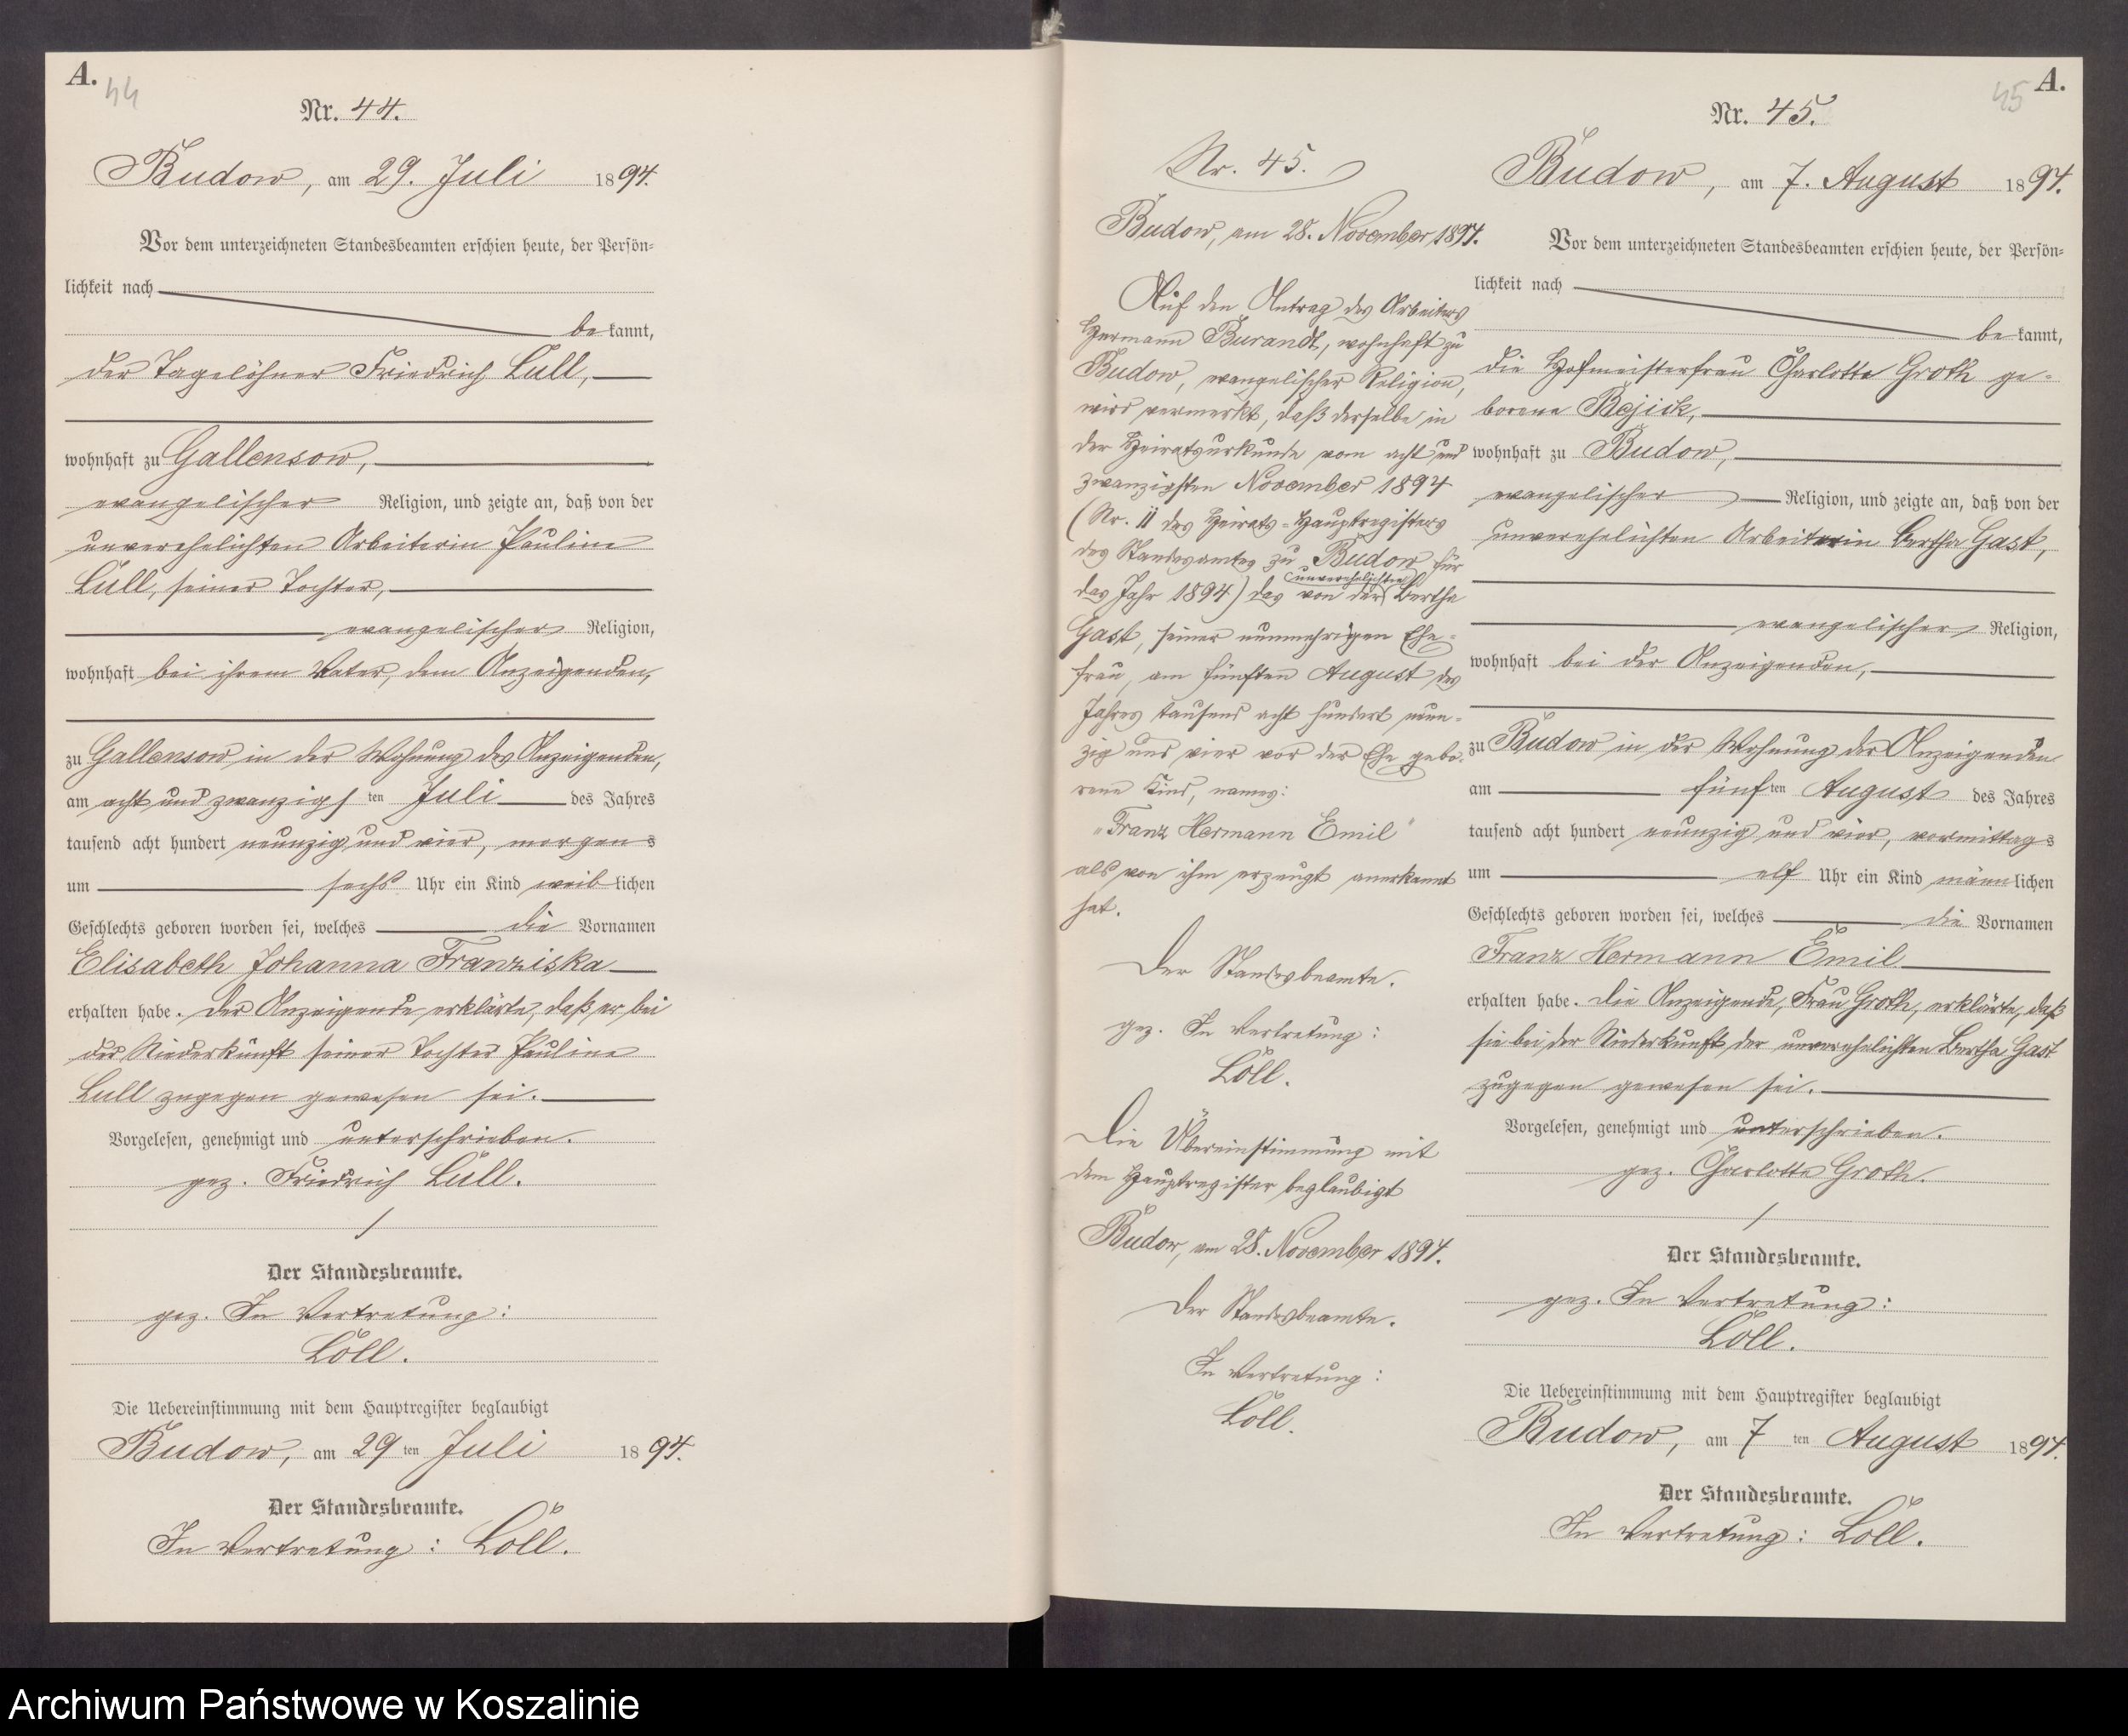 A.
44
Nr. 44.
Budow, am 29. Juli 1894.
Vor dem unterzeichneten Standesbeamten erschien heute, der Persön-
lichkeit nach
bekannt,
der Tagelöhner Friedrich Lüll,
wohnhaft zu Gallensow,
evangelischer Religion, und zeigte an, daß von der
unverehelichten Arbeiterin Pauline
Lüll, seiner Tochter,
evangelischer Religion,
wohnhaft bei ihrem Vater, dem Anzeigenden,
zu Gallensow in der Wohnung des Anzeigenden,
am acht und zwanzigsten Juli des Jahres
tausend acht hundert neunzig und vier, morgens
um sechs Uhr ein Kind weiblichen
Geschlechts geboren worden sei, welches die Vornamen
Elisabeth Johanna Franziska
erhalten habe. Der Anzeigende erklärte, daß er bei
der Niederkunft seiner Tochter Pauline
Lüll zugegen gewesen sei.
Vorgelesen, genehmigt und unterschrieben.
gez. Friedrich Lüll.
Der Standesbeamte.
gez. In Vertretung:
Löll.
Die Uebereinstimmung mit dem Hauptregister beglaubigt
Budow, am 29ten Juli 1894.
Der Standesbeamte.
In Vertretung: Löll.
Nr. 45.
Budow, am 28. November 1894.
Auf den Antrag des Arbeiters
Hermann Burandt, wohnhaft zu
Budow, evangelischer Religion,
wird vermerkt, daß derselbe in
der Heiratsurkunde vom acht und
zwanzigsten November 1894
(Nr. 11 des Heirats-Hauptregisters
des Standesamtes zu Budow für
das Jahr 1894) das von der unverehelichten Bertha
Gast, seiner nunmehrigen Ehe-
frau, am fünften August des
Jahres tausend acht hundert neun-
zig und vier vor der Ehe gebo-
rene Kind, names:
"Franz Hermann Emil"
als von ihm erzeugt anerkannt
hat.
Der Standesbeamte.
gez. In Vertretung:
Löll.
Die Übereinstimmung mit
dem Hauptregister beglaubigt
Budow, am 28. November 1894.
Der Standesbeamte.
In Vertretung:
Löll.
A.
45
Nr. 45.
Budow, am 7. August 1894.
Vor dem unterzeichneten Standesbeamten erschien heute, der Persön-
lichkeit nach
bekannt,
die Hofmeisterfrau Charlotte Groth ge-
borene Bejick,
wohnhaft zu Budow,
evangelischer Religion, und zeigte an, daß von der
unverehelichten Arbeiterin Bertha Gast,
evangelischer Religion,
wohnhaft bei der Anzeigenden,
zu Budow in der Wohnung der Anzeigenden
am fünften August des Jahres
tausend acht hundert neunzig und vier, vormittags
um elf Uhr ein Kind männlichen
Geschlechts geboren worden sei, welches die Vornamen
Franz Hermann Emil
erhalten habe. Die Anzeigende, Frau Groth, erklärte, daß
sie bei der Niederkunft der unverehelichten Bertha Gast
zugegen gewesen sei.
Vorgelesen, genehmigt und unterschrieben.
gez. Charlotte Groth.
Der Standesbeamte.
gez. In Vertretung:
Löll.
Die Uebereinstimmung mit dem Hauptregister beglaubigt
Budow, am 7ten August 1894.
Der Standesbeamte.
In Vertretung: Löll.
Archiwum Państwowe w Koszalinie